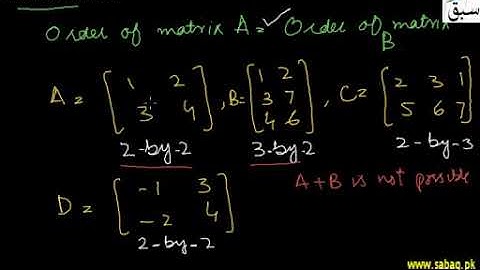 سبق
Order of matrix A = ✓ Order of matrix B
A = [ 1 2 3 4 ], B = [ 1 2 3 7 4 6 ], C = [ 2 3 1 5 6 7 ]
2-by-2 3-by-2 2-by-3
A + B is not possible
D = [ -1 3 -2 4 ]
2-by-2
www.sabaq.pk